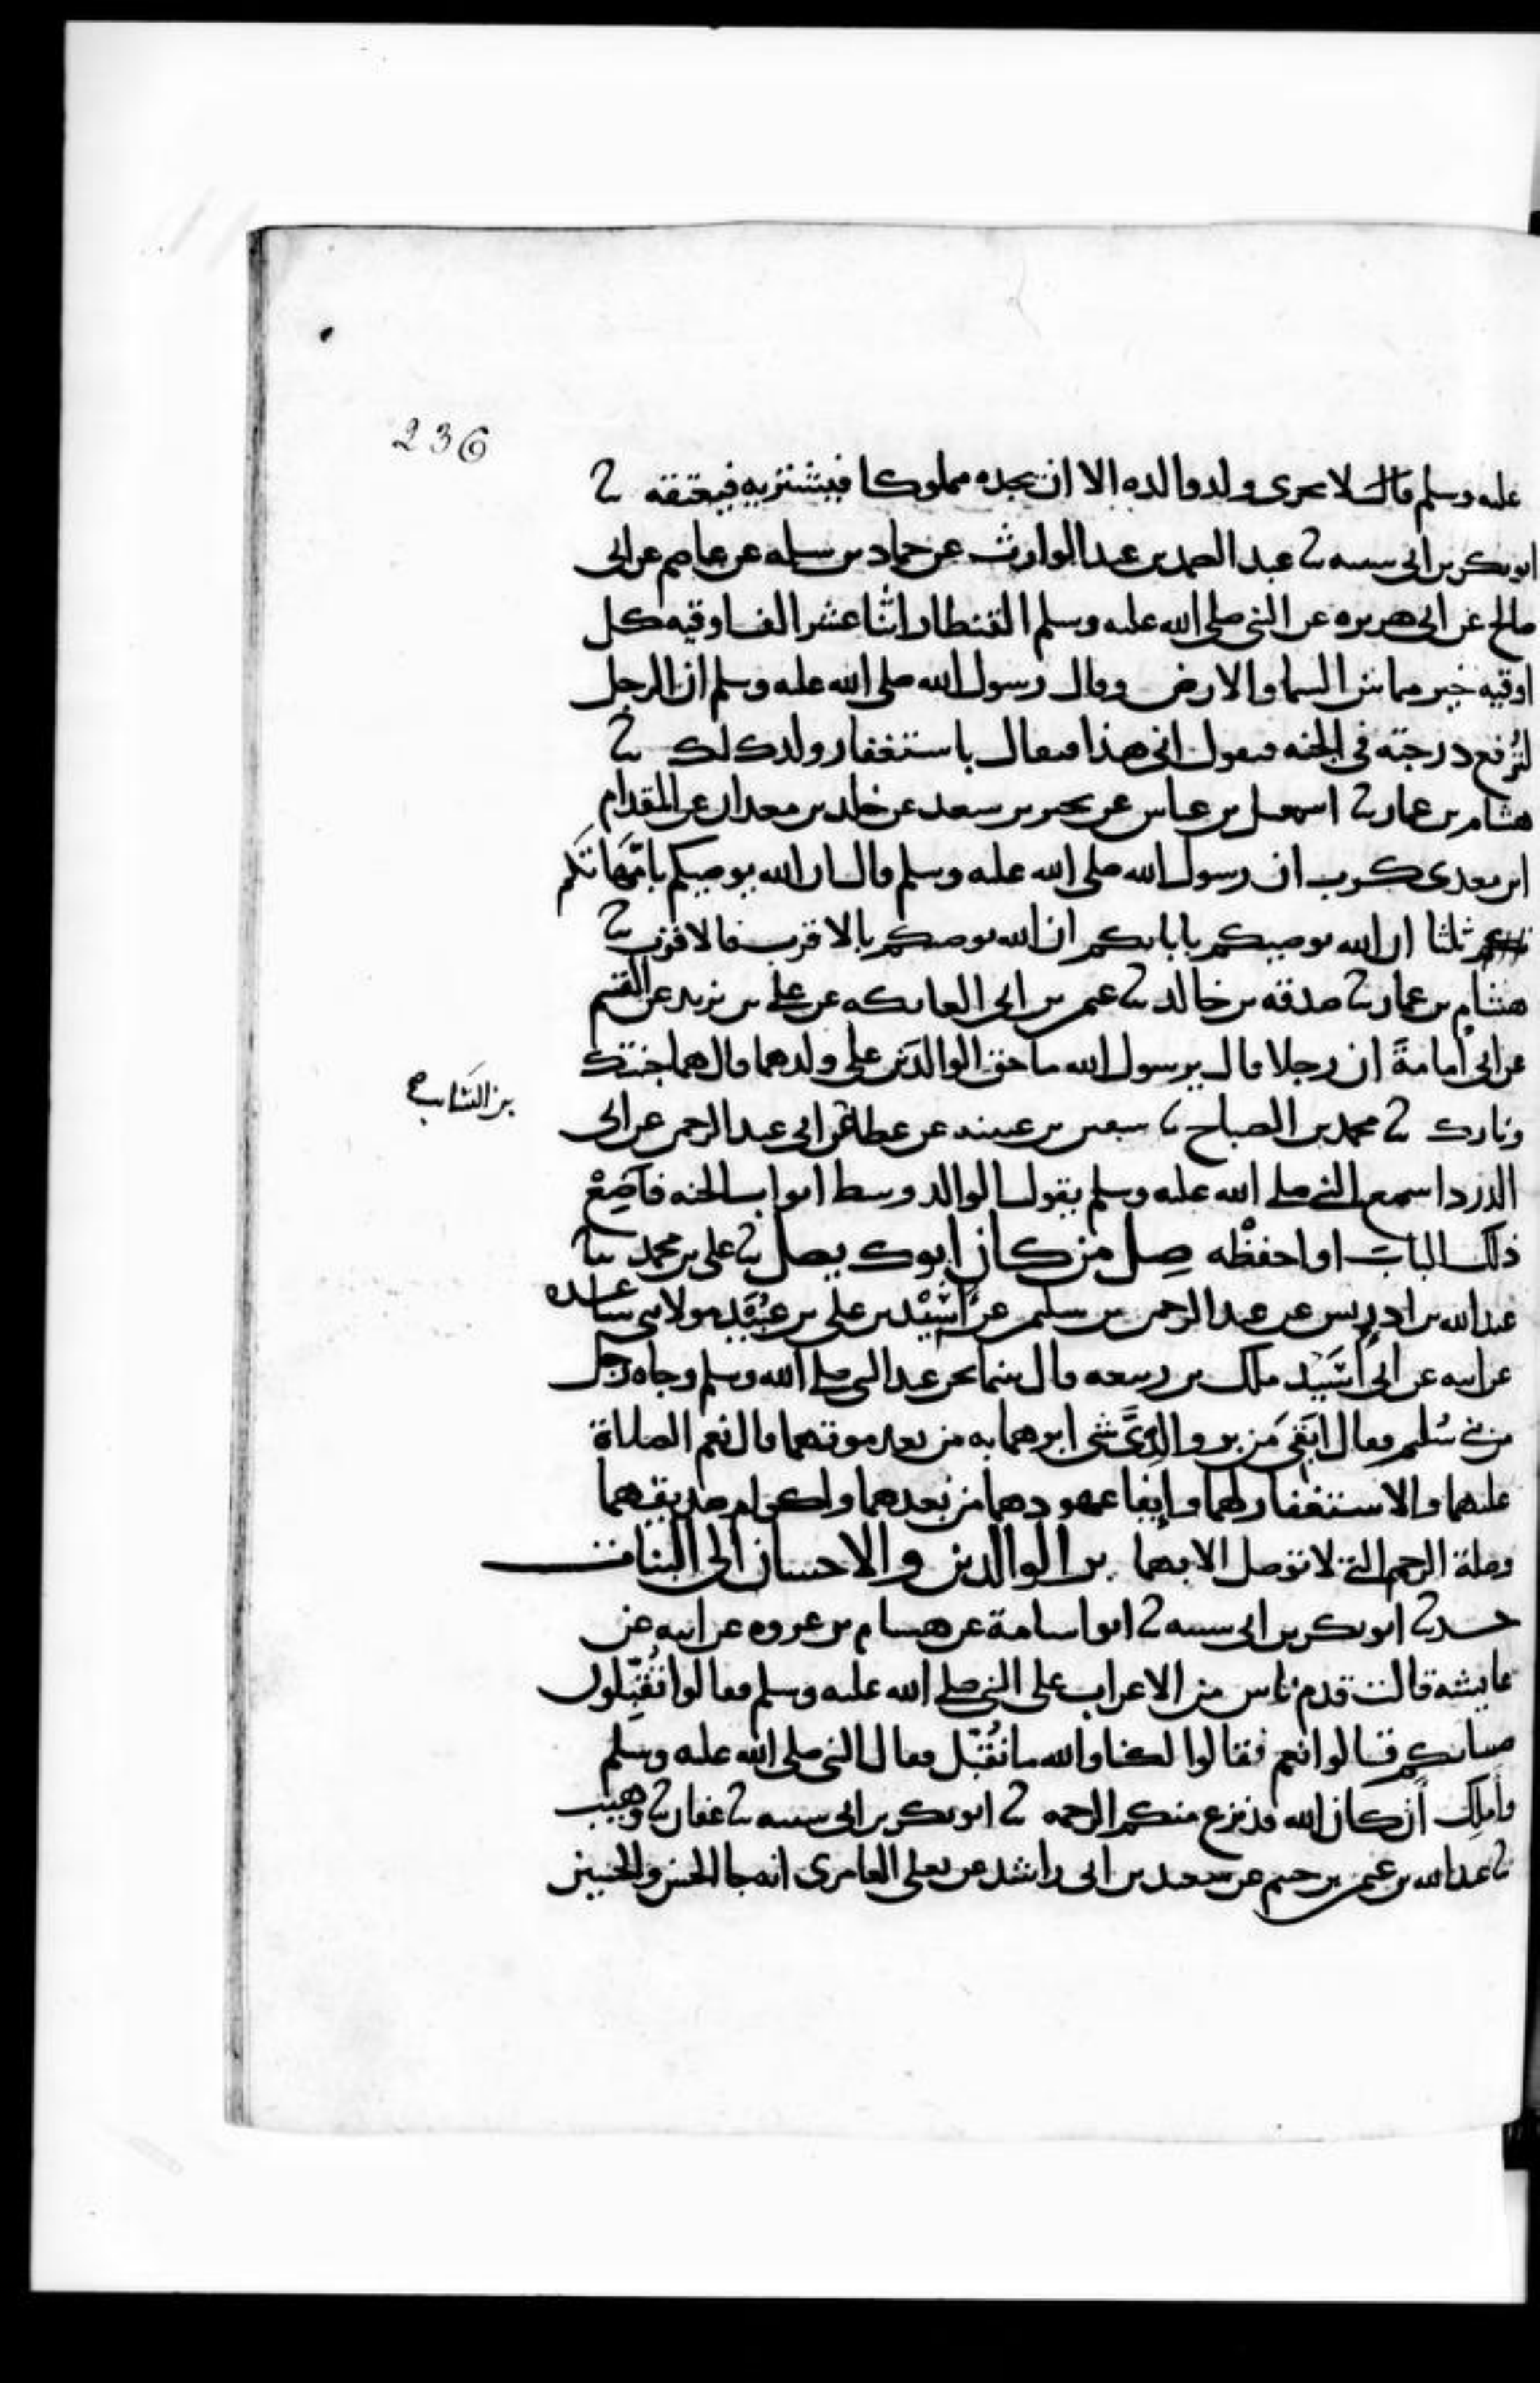 236
عليه وسلم قال لا يجزى ولد والده الا ان يجده مملوكا فيشتريه فيعتقه ثنا
ابو بكر بن ابى شيبه ثنا عبد الصمد بن عبد الوارث عن حماد بن سلمه عن عاصم عن ابى
صالح عن ابى هريره عن النبى صلى الله عليه وسلم القنطار اثنا عشر الف اوقيه كل
اوقيه خير مما بين السما والارض وقال رسول الله صلى الله عليه وسلم ان الرجل
لتُرفع درجته فى الجنه فيقول انى هذا فيقال باستغفار ولدك لك ثنا
هشام بن عمار ثنا اسمعيل بن عياش عن بحير بن سعد عن خلد بن معدان عن المقدام
ابن معدى كرب ان رسول الله صلى الله عليه وسلم قال ان الله يوصيكم بامَّهاتكم
ثلثا ان الله يوصيكم بابايكم ان الله يوصيكم بالاقرب فالاقرب ثنا
هشام بن عمار ثنا صدقه بن خالد ثنا عثمن بن ابى العاتكه عن على بن يزيد عن القسم
عن ابى أمامةَ ان رجلا قال يرسول الله ما حق الوالدَين على ولدهما قال هما جنتك
ونارك ثنا محمد بن الصباح ثنا سفين بن عيينه عن عطا عن ابى عبد الرحمن عن ابى
بن السَّايب صح
الدردا سمع النبى صلى الله عليه وسلم يقول الوالد وسط ابواب الجنه فاَضِعْ
ذلك الباب او احفظْه صِل من كان ابوك يصل ثنا على بن محمد ثنا
عبد الله بن ادريس عن عبد الرحمن بن سليمن عن أَسِيْد بن على بن عُبَيْد مولى بنى ساعده
عن ابيه عن ابى أُسَيْد ملك بن ربيعه قال بينما نحن عند النبى صلى الله وسلم وجاه رجل
من بنى سُلَيم فقال ابَقىَ مِن بر والِدَىَّ شى ابرهما به من بعد موتهما قال نعم الصلاة
عليهما والاستغفار لهما وإيفا عهودهما من بعدهما واكرام صديقهما
وصلة الرحم التى لا توصل الا بهما بر الوالدين والاحسان الى البنات
حدثنا ابو بكر بن ابى شيبه ثنا ابو اسامة عن هشام بن عروه عن ابيه عن
عايشه قالت قدم ناس من الاعراب على النبى صلى الله عليه وسلم فقالوا اتُقَبِّلون
صبيانكم قالوا نعم فقالوا لكنا والله ما نُقَبّل فقال النبى صلى الله عليه وسلم
وأملِك أن كان الله قد نزع منكم الرحمه ثنا ابو بكر بن ابى شيبه ثنا عفان ثنا وهيب
ثنا عبد الله بن عثمن بن خثيم عن سعيد بن ابى راشد عن يعلى العامرى انه جا الحسن والحسين